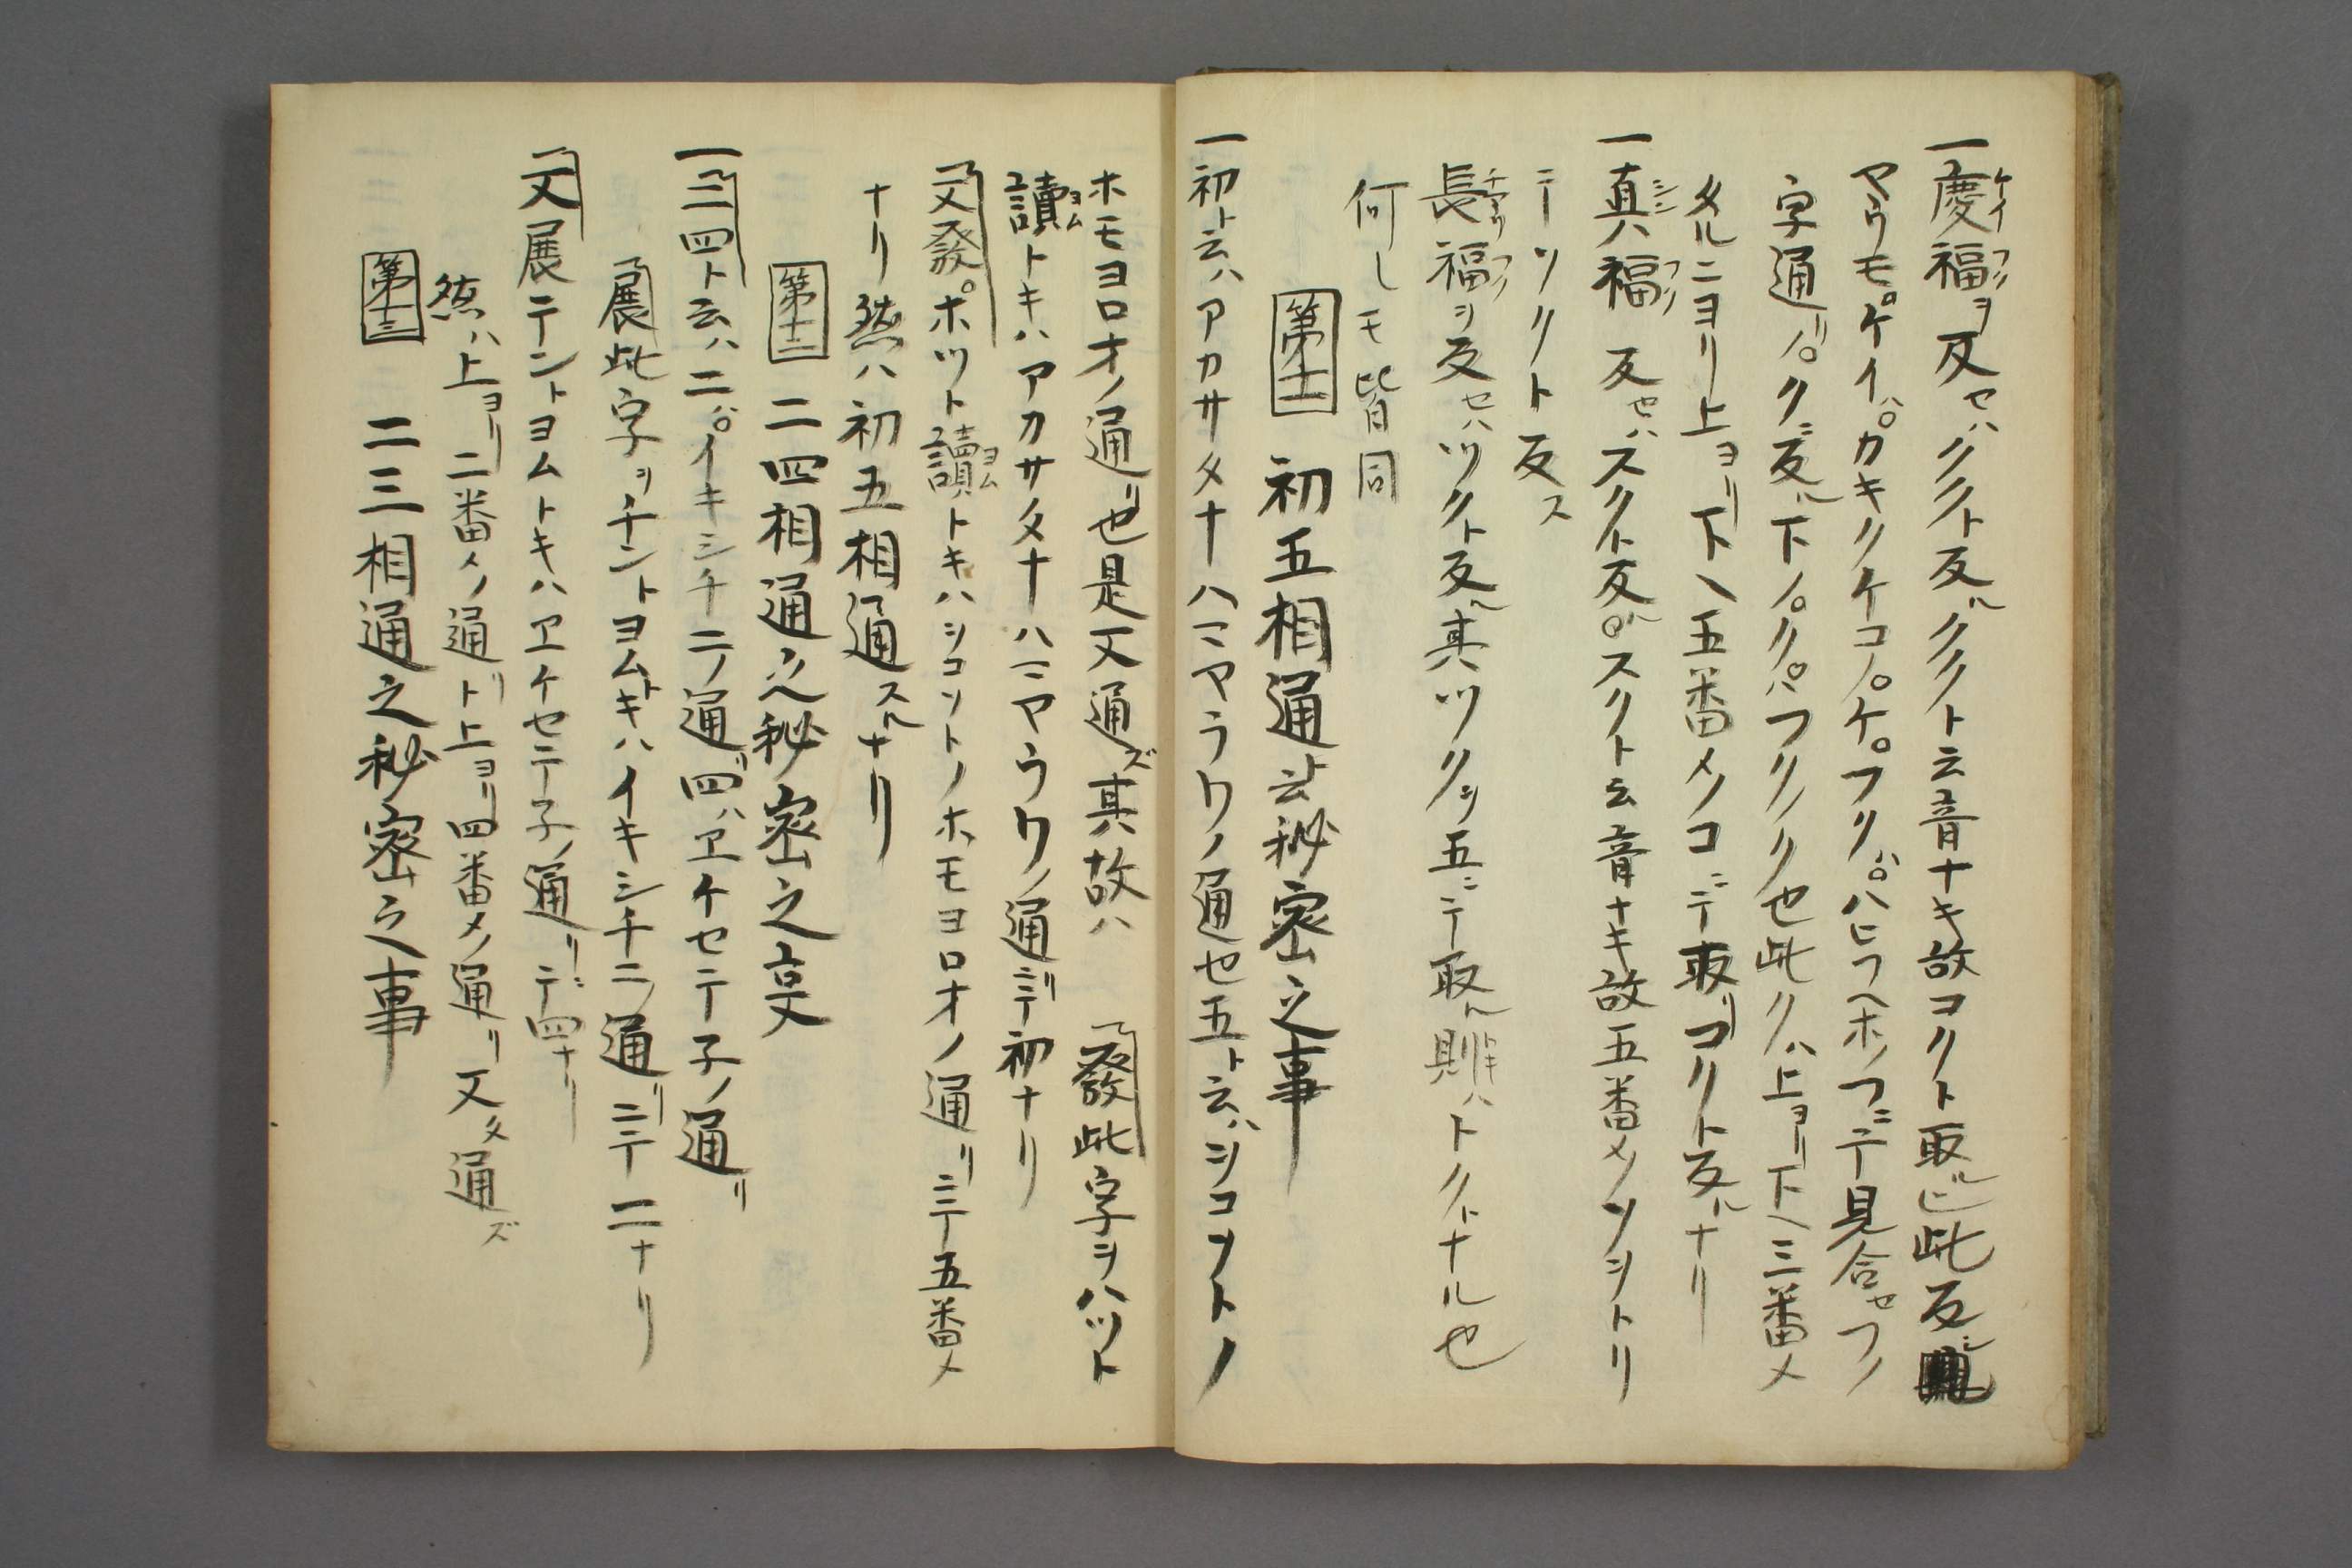 一慶福ヲ反セハククト反ルククト云音ナキ故コクト取ル此反ニ
マウモケイハカキクケコノケフクハハヒフヘホノフニテ見合セフノ
字通リノクニ反ル下ノクハフクノク也此クハ上ヨリ下ヘ三番メ
タルニヨリ上ヨリ下ヘ五番メノコニテ取リコクト反ルナリ
一真福反セハスクト反ルスクト云音ナキ故五番メノソヲトリ
テソクト反ス
長福ヲ反セハツクト反ル其ツクヲ五ニテ取ル則ハトクトナル也
何レモ皆同
第十一 初五相通ト云秘密之事
一初ト云ハアカサタナハマヤラワノ通也五ト云ハヲコソトノ
ホモヨロオノ通リ也是又通ズ其故ハ 發此字ヲハツト
讀トキハアカサタナハマヤラワノ通リニテ初ナリ
又發ホツト讀トキハヲコソトノホモヨロオノ通リニテ五番メ
ナリ然ハ初五相通スルナリ
第十二 二四相通之秘密之事
一二四ト云ハ二ハイキシチニノ通リ四ハヱケセテ子ノ通リ
展此字ヲチントヨムトキハイキシチニノ通リニテ二ナリ
又展テントヨムトキハヱケセテ子ノ通リニテ四ナリ
然ハ上ヨリ二番メノ通リト上ヨリ四番メノ通リ又タ通ズ
第十三 二三相通之秘密之事